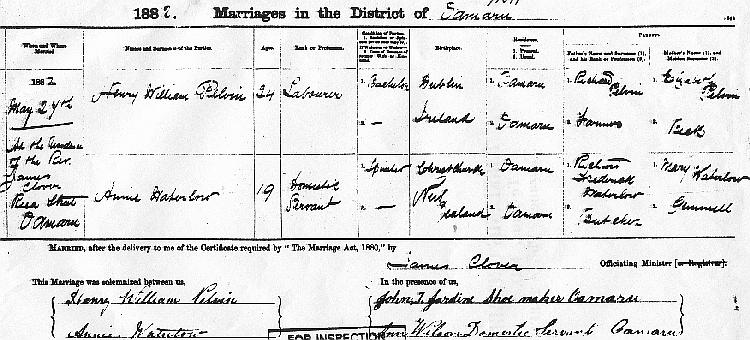 1882. Marriages in the District of Oamaru
When and Where Married
Names and Surnames of the Parties.
Age.
Rank or Profession.
Condition of Parties.
Birthplace.
Residence.
1. Present.
2. Usual.
Parents.
Father's Name and Surname (1), and his Rank or Profession (2).
Mother's Name (1), and Maiden Surname (2).
1882
May 27th
Henry William Pelvin 24 Labourer 1. Bachelor Dublin 1. Oamaru 1. Richard Pelvin 1. Elizabeth Pelvin
2. — Ireland 2. Oamaru 2. Farmer 2. Peek
At the Residence
of the Rev.
James
Clover
Reed Street
Oamaru
Annie Waterlow 19 Domestic Servant 1. Spinster Christchurch 1. Oamaru 1. Richard Frederick Waterlow 1. Mary Waterlow
2. — New Zealand 2. Oamaru 2. Butcher 2. Gummell
Married, after the delivery to me of the Certificate required by "The Marriage Act, 1880," by
James Clover Officiating Minister [or Registrar].
This Marriage was solemnized between us,
In the presence of us,
Henry William Pelvin
John T. Jardine Shoe maker Oamaru
Annie Waterlow
Wilson Domestic Servant Oamaru
FOR INSPECTION